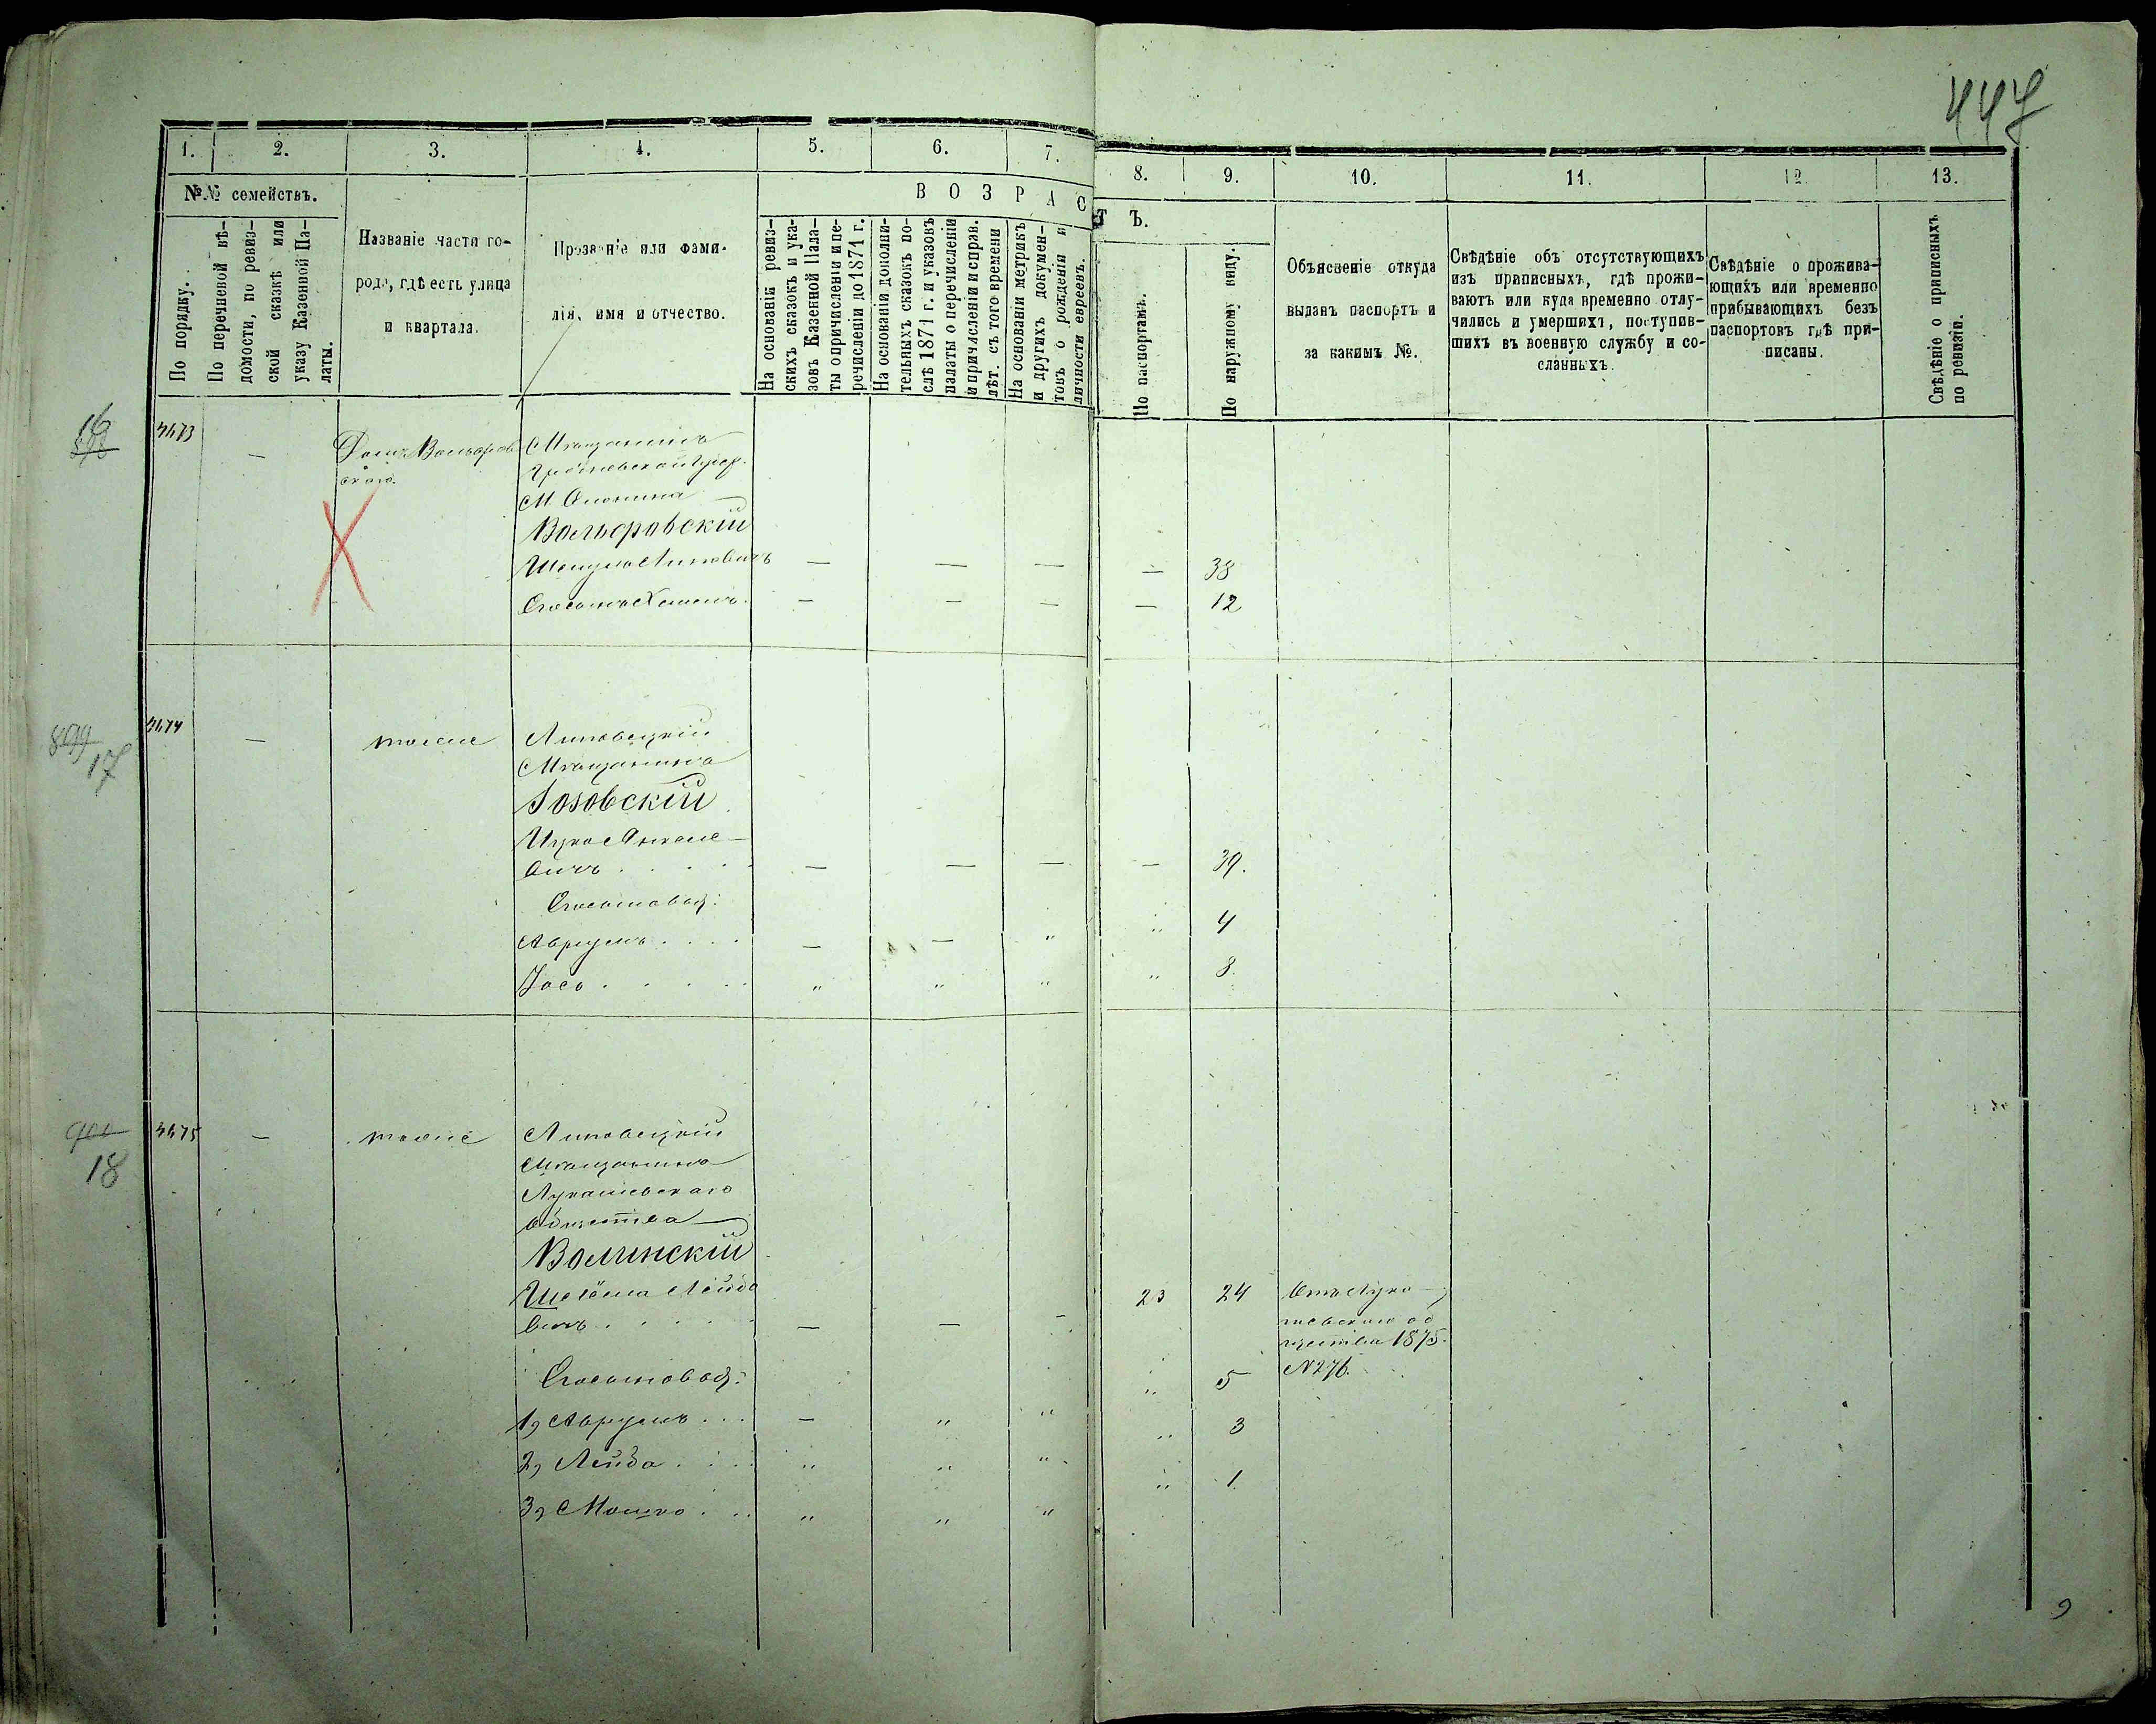 447
1. 2. 3. 4. 5. 6. 7. 8. 9. 10. 11. 12. 13.
№№ семействъ.
В О З Р А С Т Ъ.
По порядку.
По перечневой вѣ-
домости, по ревиз-
ской сказкѣ или
указу Казенной Па-
латы.
Названіе части го-
рода, гдѣ есть улица
и квартала.
Прозваніе или фами-
лія, имя и отчество.
На основаніи ревиз-
скихъ сказокъ и ука-
зовъ Казенной Пала-
ты о причисленіи и пе-
речисленіи до 1871 г.
На основаніи дополни-
тельныхъ сказокъ по-
слѣ 1871 г. и указовъ
палаты о перечисленіи
и причисленіи и справ.
лѣт. съ того времени
На основаніи метрикъ
и другихъ докумен-
товъ о рожденіи и
личности евреевъ.
По паспортамъ.
По наружному виду.
Объясненіе откуда
выданъ паспортъ и
за какимъ №.
Свѣдѣніе объ отсутствующихъ
изъ приписныхъ, гдѣ прожи-
ваютъ или куда временно отлу-
чились и умершихъ, поступив-
шихъ въ военную службу и со-
сланныхъ.
Свѣдѣніе о прожива-
ющихъ или временно
прибывающихъ безъ
паспортовъ гдѣ при-
писаны.
Свѣдѣніе о приписныхъ
по ревизіи.
16
Мѣщанинъ
Гродненской Губер.
Вольеровскій
— — — — 38
— — — — 12
899
17
— тоже Липовецкій
Мѣщанинъ
Гозовскій
Ицко Янкеле-
вичъ . . . . — — — — 39.
Сыновья:
Аврумъ . . . . — — " " 4
Іось . . . . . " " " " 8.
900
18
— тоже Липовецкій
Мѣщанинъ
Лукашевскаго
общества
Волинскій
Лейбо
вичъ . . . . — — - 23 24 Отъ Лука-
шевскаго об
щества 1875.
№276.
Сыновья:
1, Аврумъ . . . — " " " 5
2, Лейба . . . . " " " " 3
3, Мошко . . . " " " " 1.